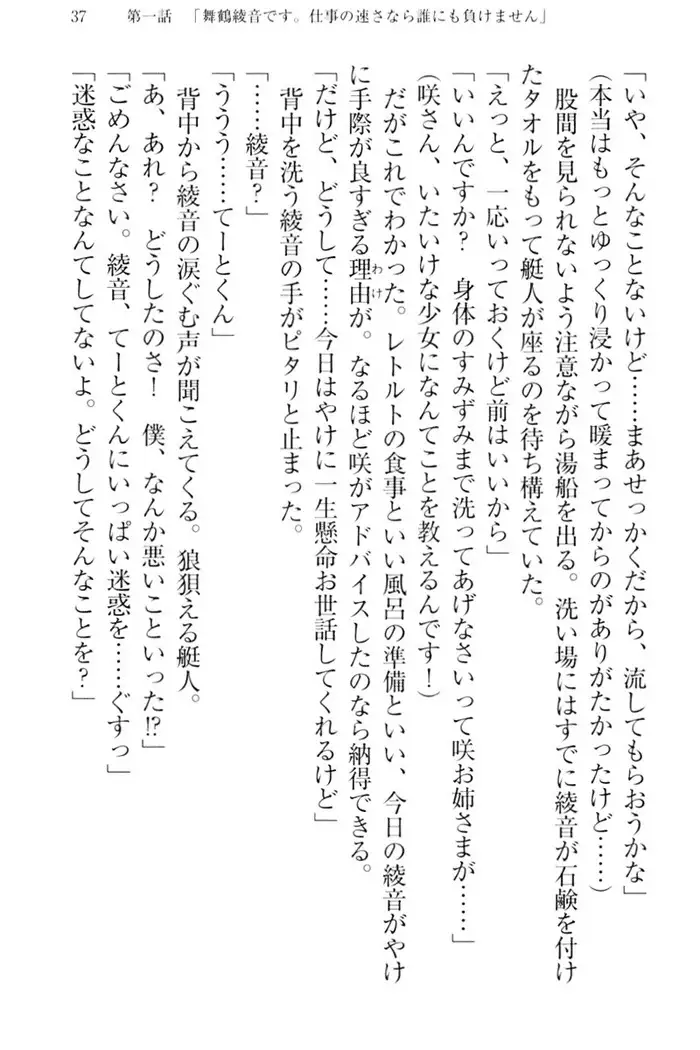 37　第一話　「舞鶴綾音です。仕事の速さなら誰にも負けません」
「いや、そんなことないけど……まあせっかくだから、流してもらおうかな」
(本当はもっとゆっくり浸かって暖まってからのがありがたかったけど……)
　股間を見られないよう注意ながら湯船を出る。洗い場にはすでに綾音が石鹸を付け
たタオルをもって艇人が座るのを待ち構えていた。
「えっと、一応いっておくけど前はいいから」
「いいんですか？　身体のすみずみまで洗ってあげなさいって咲お姉さまが……」
(咲さん、いたいけな少女になんてことを教えるんです！)
　だがこれでわかった。レトルトの食事といい風呂の準備といい、今日の綾音がやけ
に手際が良すぎる理由わけが。なるほど咲がアドバイスしたのなら納得できる。
「だけど、どうして……今日はやけに一生懸命お世話してくれるけど」
　背中を洗う綾音の手がピタリと止まった。
「……綾音？」
「ううう……てーとくん」
　背中から綾音の涙ぐむ声が聞こえてくる。狼狽える艇人。
「あ、あれ？　どうしたのさ！　僕、なんか悪いこといった!?」
「ごめんなさい。綾音、てーとくんにいっぱい迷惑を……ぐすっ」
「迷惑なことなんてしてないよ。どうしてそんなことを？」